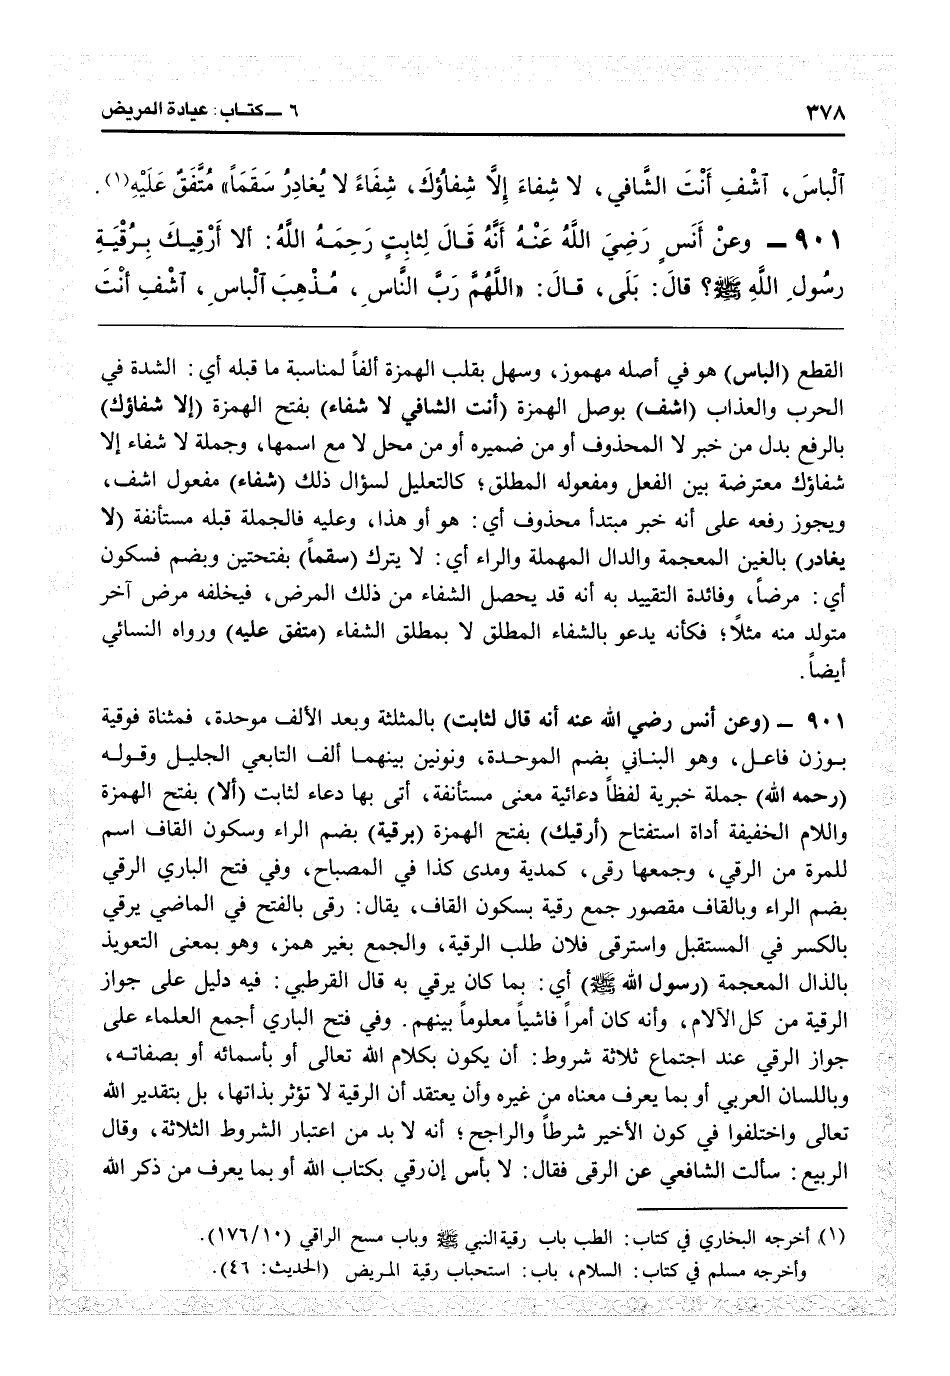 ٣٧٨ ٦ ــ كتـاب: عيادة المريض
ٱلْباسَ، ٱشْفِ أَنْتَ الشَّافي، لا شِفاءَ إِلَّا شِفاؤُكَ، شِفَاءً لا يُغادِرُ سَقَمَاً» مُتَّفَقٌ عَلَيْهِ(١).
٩٠١ ــ وعنْ أَنَسٍ رَضِيَ اللَّهُ عَنْـهُ أَنَّهُ قَـالَ لِثابِتٍ رَحِمَـهُ اللَّهُ: ألا أَرْقِيـكَ بِـرُقْيَـةِ
رسُولِ اللَّهِ ﷺ؟ قالَ: بَلَى، قـالَ: «اللَّهُمَّ رَبَّ النَّاسِ، مُـذْهِبَ ٱلْباسِ، ٱشْفِ أنْتَ
القطع (الباس) هو في أصله مهموز، وسهل بقلب الهمزة ألفاً لمناسبة ما قبله أي: الشدة في
الحرب والعذاب (اشف) بوصل الهمزة (أنت الشافي لا شفاء) بفتح الهمزة (إلا شفاؤك)
بالرفع بدل من خبر لا المحذوف أو من ضميره أو من محل لا مع اسمها، وجملة لا شفاء إلا
شفاؤك معترضة بين الفعل ومفعوله المطلق؛ كالتعليل لسؤال ذلك (شفاء) مفعول اشف،
ويجوز رفعه على أنه خبر مبتدأ محذوف أي: هو أو هذا، وعليه فالجملة قبله مستأنفة (لا
يغادر) بالغين المعجمة والدال المهملة والراء أي: لا يترك (سقماً) بفتحتين وبضم فسكون
أي: مرضاً، وفائدة التقييد به أنه قد يحصل الشفاء من ذلك المرض، فيخلفه مرض آخر
متولد منه مثلًا؛ فكأنه يدعو بالشفاء المطلق لا بمطلق الشفاء (متفق عليه) ورواه النسائي
أيضاً.
٩٠١ ــ (وعن أنس رضي الله عنه أنه قال لثابت) بالمثلثة وبعد الألف موحدة، فمثناة فوقية
بـوزن فاعـل، وهو البنـاني بضم الموحـدة، ونونين بينهمـا ألف التابعي الجليـل وقـولـه
(رحمه الله) جملة خبرية لفظاً دعائية معنى مستأنفة، أتى بها دعاء لثابت (ألا) بفتح الهمزة
واللام الخفيفة أداة استفتاح (أرقيك) بفتح الهمزة (برقية) بضم الراء وسكون القاف اسم
للمرة من الرقي، وجمعها رقى، كمدية ومدى كذا في المصباح، وفي فتح الباري الرقي
بضم الراء وبالقاف مقصور جمع رقية بسكون القاف، يقال: رقى بالفتح في الماضي يرقي
بالكسر في المستقبل واسترقى فلان طلب الرقية، والجمع بغير همز، وهو بمعنى التعويذ
بالذال المعجمة (رسول الله ﷺ) أي: بما كان يرقي به قال القرطبي: فيه دليل على جواز
الرقية من كل الآلام، وأنه كان أمراً فاشياً معلوماً بينهم. وفي فتح الباري أجمع العلماء على
جواز الرقي عند اجتماع ثلاثة شروط: أن يكون بكلام الله تعالى أو بأسمائه أو بصفاتـه،
وباللسان العربي أو بما يعرف معناه من غيره وأن يعتقد أن الرقية لا تؤثر بذاتها، بل بتقدير الله
تعالى واختلفوا في كون الأخير شرطاً والراجح؛ أنه لا بد من اعتبار الشروط الثلاثة، وقال
الربيع: سألت الشافعي عن الرقى فقال: لا بأس إن رقي بكتاب الله أو بما يعرف من ذكر الله
(١) أخرجه البخاري في كتاب: الطب باب رقية النبي ﷺ وباب مسح الراقي (١٧٦/١٠).
وأخرجه مسلم في كتاب: السلام، باب: استحباب رقية المريض (الحديث: ٤٦).